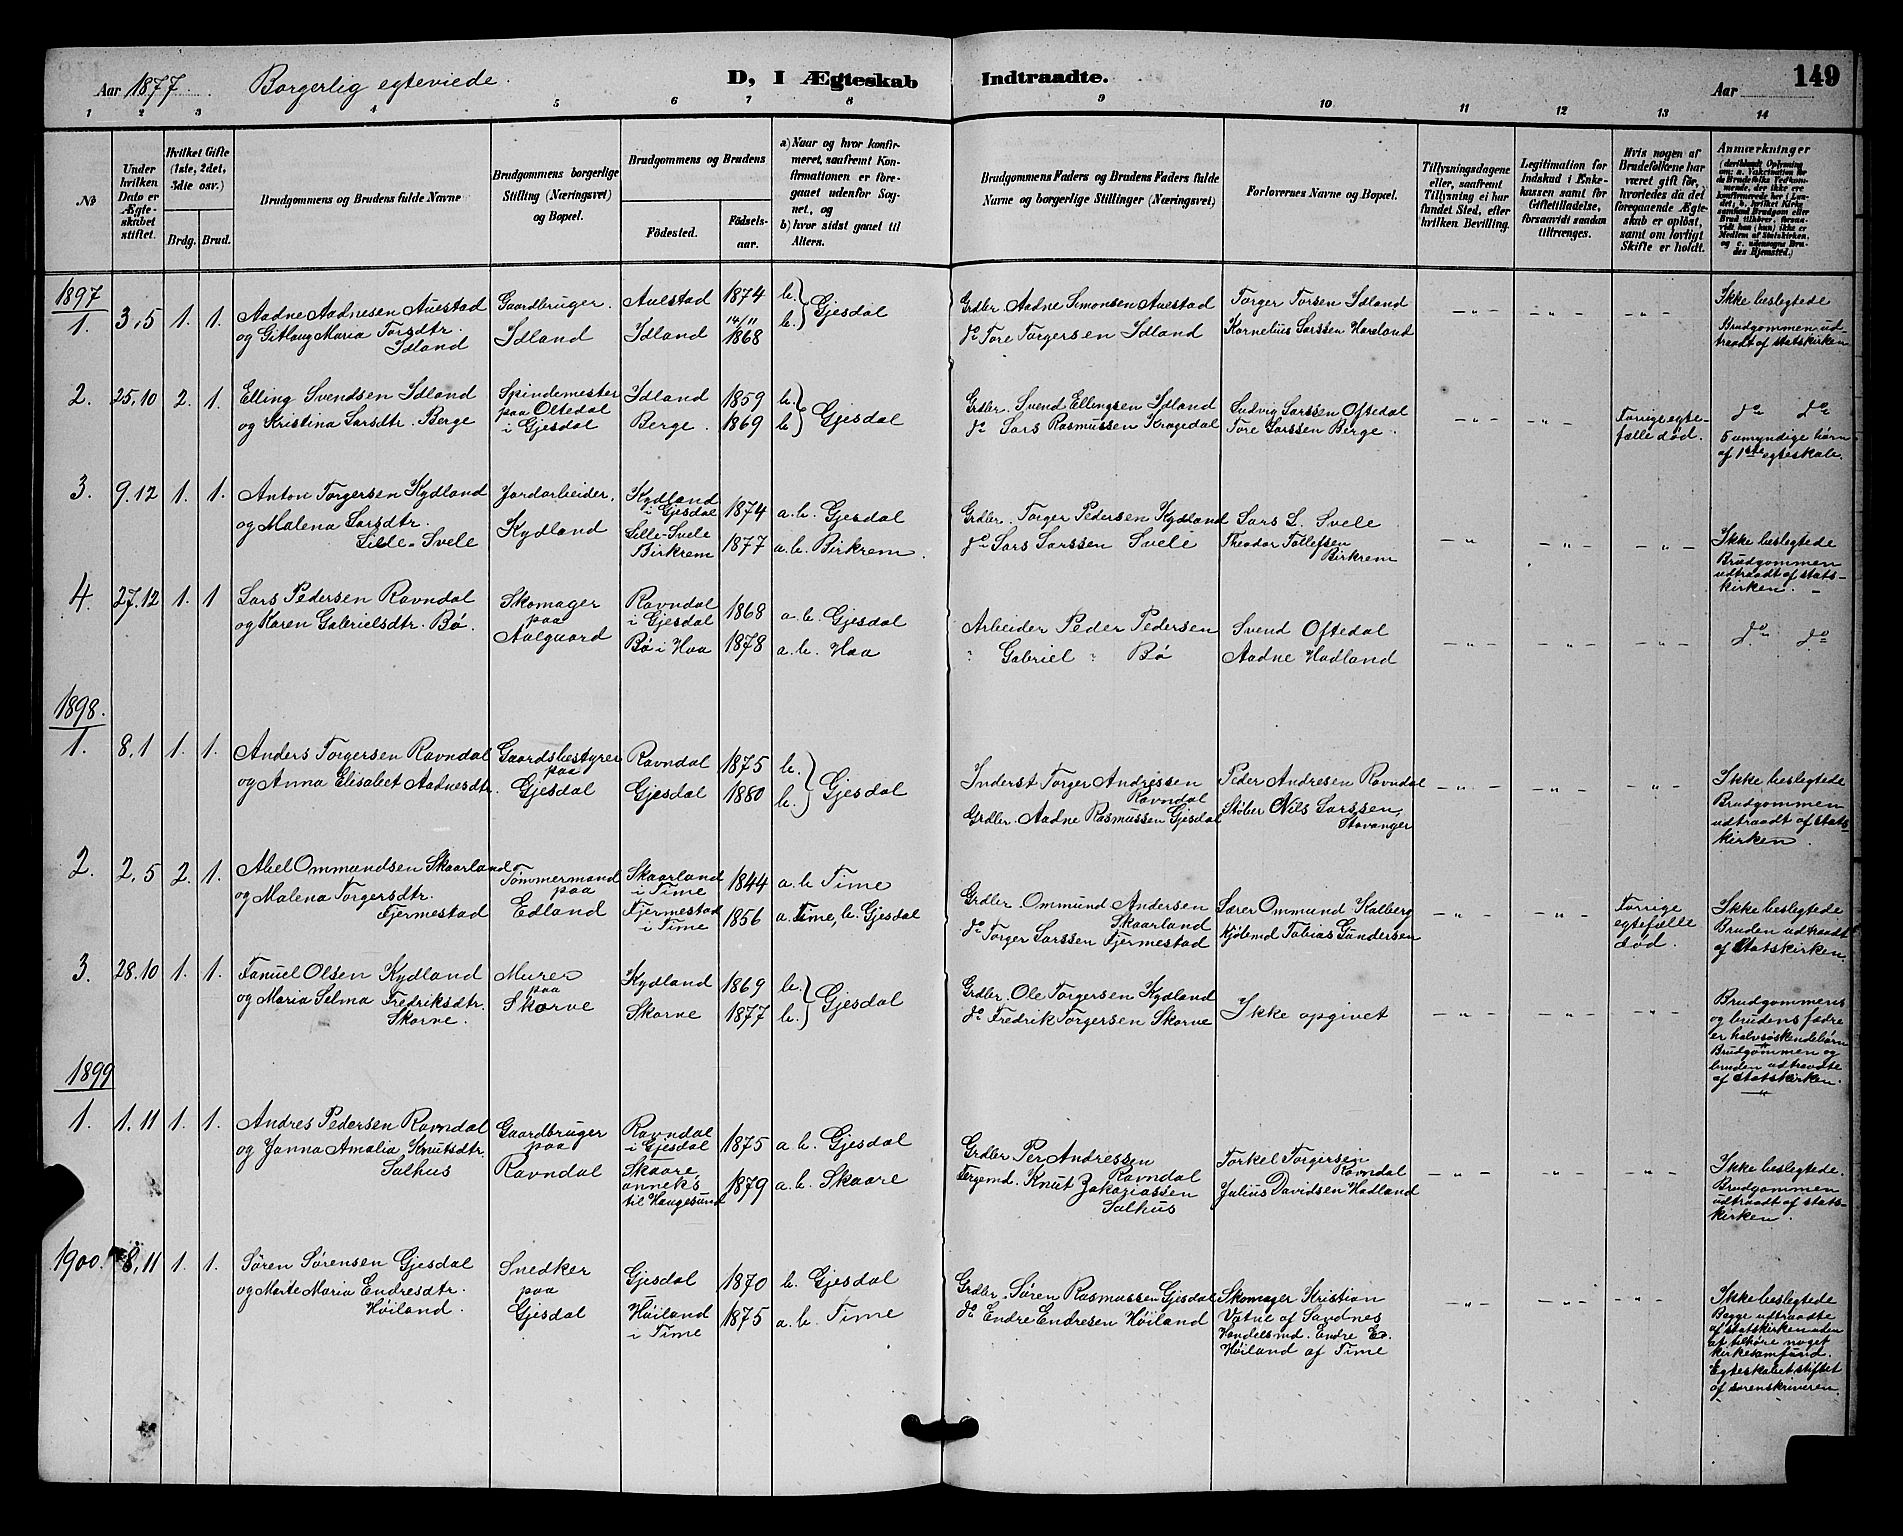 Aar 1877. Borgerlig egteviede. D, I Ægteskab Indtraadte. Aar 149
1 2 3 4 5 6 7 8 9 10 11 12 13 14
No
Under hvilken Dato er Ægteskabet stiftet.
Hvilket Gifte (1ste, 2det, 3die osv.)
Brdg. Brud.
Brudgommens og Brudens fulde Navne
Brudgommens borgerlige Stilling (Næringsvei) og Bopæl.
Brudgommens og Brudens
Fødested. Fødselsaar.
a) Naar og hvor konfirmeret, saafremt Konfirmationen er foregaaet udenfor Sognet, og
b) hvor sidst gaaet til Alters.
Brudgommens Faders og Brudens Faders fulde Navne og borgerlige Stillinger (Næringsvei)
Forlovernes Navne og Bopæl.
Tillysningsdagene eller, saafremt Tillysning ei har fundet Sted, efter hvilken Bevilling.
Legitimation for Indskud i Enkekassen samt for Giftetilladelse, forsaavidt saadan tiltrænges.
Hvis nogen af Brudefolkene har været gift før, hvorledes da det foregaaende Ægteskab er opløst, samt om lovligt Skifte er holdt.
Anmærkninger
1897
1. 3,5 1. 1. Aadne Aadnesen Auestad
og Gitlaug Maria Torsdtr.
Idland
Gaardbruger.
Idland
Auestad 1874 b.
14/11
Idland 1868 b.
Gjesdal
Grdbr. Aadne Simonsen Auestad
do Tore Torgersen Idland
Torger Torsen Idland
Kornelius Larssen Haaland
Ikke beslegtede
Brudgommen udtraadt af statskirken
2. 25,10 2. 1. Elling Svendsen Idland
og Kristina Larsdtr. Berge
Spindemester
paa Oltedal
i Gjesdal
Idland 1859 b.
Berge. 1869 b.
Gjesdal
Grdbr. Svend Ellingsen Idland
do Lars Rasmussen Kragedal
Ludvig Larssen Oftedal
Tore Larssen Berge.
Forrige egtefælle død.
do do
5 umyndige børn
af 1ste egteskab.
3. 9.12 1. 1. Anton Torgersen Kydland
og Malena Larsdtr.
Lille-Svele
Jordarbeider.
Kydland
Kydland
i Gjesdal 1874 a.b. Gjesdal
Lille-Svele
Birkrem 1877 a.b. Birkrem.
Grdbr. Torger Pedersen Kydland
do Lars Larssen Svele
Lars L. Svele
Theodor Tollefsen
Birkrem
Ikke beslegtede
Brudgommen
udtraadt af statskirken.
4. 27.12 1. 1 Lars Pedersen Ravndal
og Karen Gabrielsdtr. Bø.
Skomager
paa
Aalgaard
Ravndal
i Gjesdal 1868 a.b. Gjesdal
Bø i Haa 1878 a.b. Haa
Arbeider Peder Pedersen
" Gabriel " Bø
Svend Oftedal
Aadne Hadland
do do
1898.
1. 8,1 1. 1. Anders Torgersen Ravndal
og Anna Elisabet Aadnesdtr.
Gaardsbestyrer
paa
Gjesdal
Ravndal 1875 b.
Gjesdal 1880 b.
Gjesdal
Inderst Torger Andressen
Ravndal
Grdbr. Aadne Rasmussen Gjesdal
Peder Andresen Ravndal
Støber Nils Larssen,
Stavanger
Ikke beslegtede
Brudgommen
udtraadt af statskirken.
2. 2,5 2. 1. Abel Ommundsen Skaarland
og Malena Torgersdtr.
Fjermestad
Tømmermand
paa
Edland
Skaarland
i Time 1844 a.b Time
Fjermestad
i Time 1856 a. Time, b. Gjesdal
Grdbr. Ommund Andersen
Skaarland
do Torger Larssen Fjermestad
Lærer Ommund Kalberg
Kjøbmd Tobias Gundersen
Forrige
egtefælle
død.
Ikke beslegtede
Bruden udtraadt
af statskirken.
3. 28.10 1. 1. Fanuel Olsen Kydland
og Maria Selma Fredriksdtr.
Skorve.
Murer
paa
Skorve
Kydland 1869 b.
Skorve 1877 b.
Gjesdal
Grdbr. Ole Torgersen Kydland
do Fredrik Torgersen Skorve
Ikke opgivet
Brudgommens
og brudens fædre
er halvsøskendebørn
Brudgommen og
bruden udtraadte
af statskirken.
1899
1. 1.11 1. 1. Andres Pedersen Ravndal
og Janna Amalia Knutsdtr.
Salhus
Gaardbruger
paa
Ravndal
Ravndal
i Gjesdal 1875 a b. Gjesdal
Skaare
anneks
til Haugesund 1879 a.b. Skaare
Grdbr Per Andressen
Ravndal
Færgemd. Knut Zakariassen
Salhus
Torkel Torgersen
Ravndal
Julius Davidsen Hadland
Ikke beslegtede.
Brudgommen
udtraadt af statskirken.
1900. 8,11 1. 1. Søren Sørensen Gjesdal
og Marte Maria Endresdtr.
Høiland.
Snedker
paa
Gjesdal
Gjesdal 1870 b. Gjesdal
Høiland
i Time 1875 a.b. Time
Grdbr. Søren Rasmussen Gjesdal
do Endre Endresen Høiland
Skomager Kristian
Vatne af Sandnes
Handelsmd. Endre E.
Høiland af Time
Ikke beslegtede
Begge udtraadte
af statskirken uden
at tilhøre noget
kirkesamfund.
Egteskabet stiftet
af sorenskriveren.